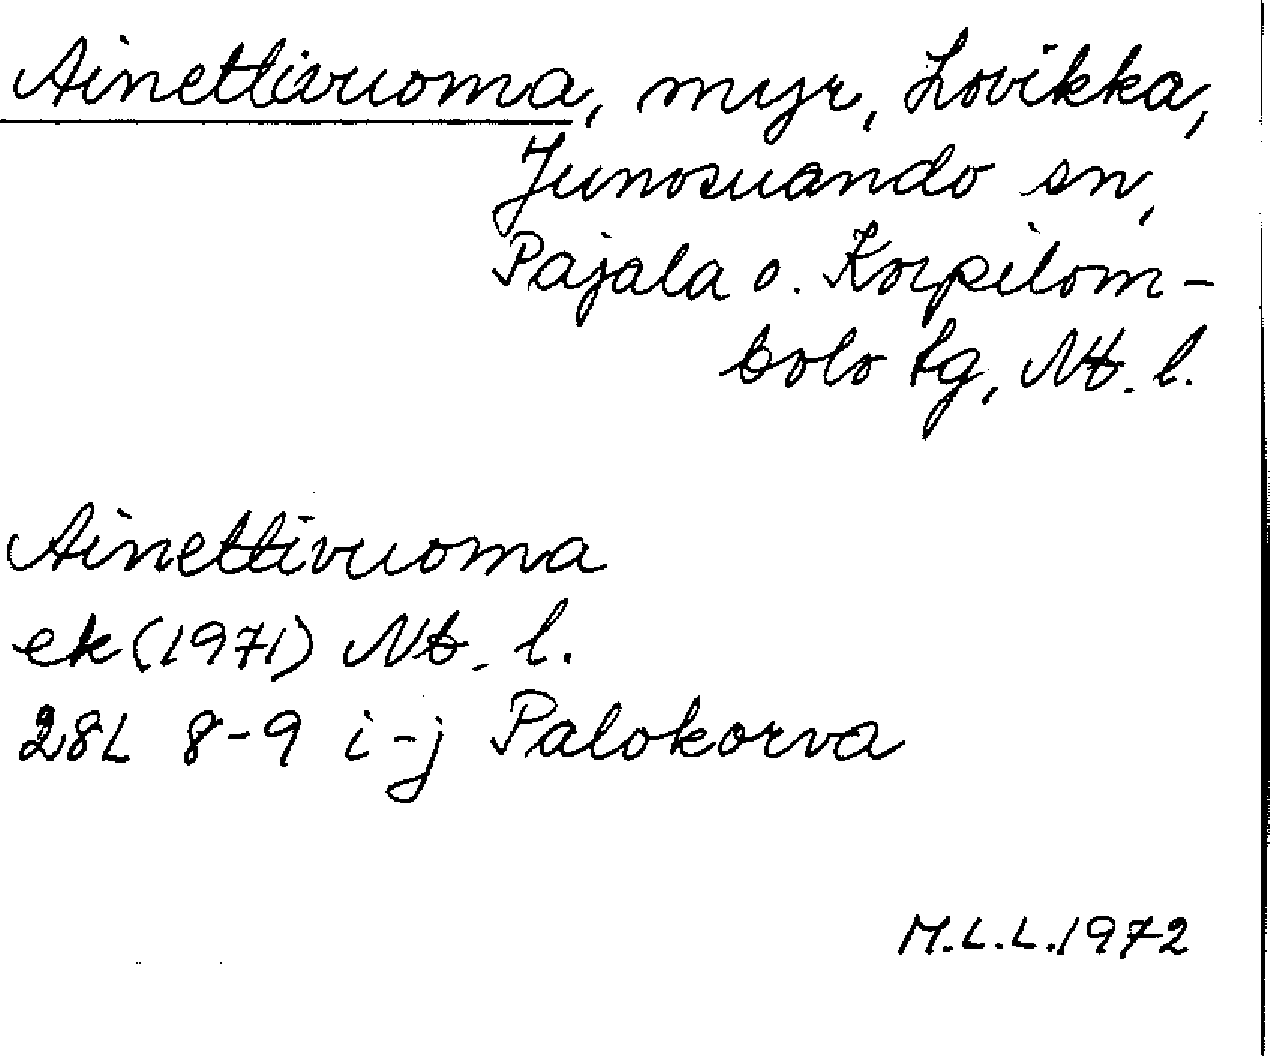 Ainettivuoma, myr, Lovikka,
Junosuando sn,
Pajala o. Korpilom-
bolo tg, Nb. l.
Ainettivuoma
ek (1971) Nb. l.
28L 8-9 i-j Palokorva
M.L.L. 1972